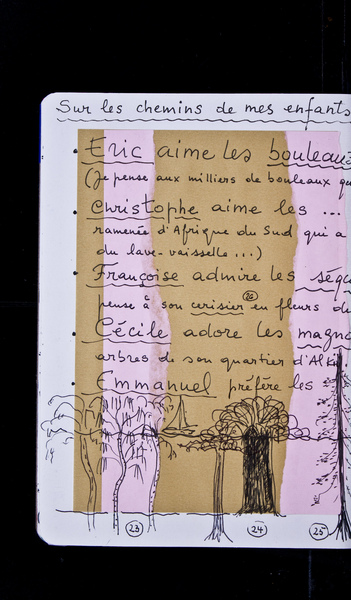 Sur les chemins de mes enfants
• Eric aime les bouleaux
(Je pense aux milliers de bouleaux que
• Christophe aime les ...
ramenée d'Afrique du Sud qui a
du lave-vaisselle ...)
• Françoise admire les séqu
pense à son cerisier en fleurs de
26
• Cécile adore les magno
arbres de son quartier d'Alki
• Emmanuel préfère les
23 24 25